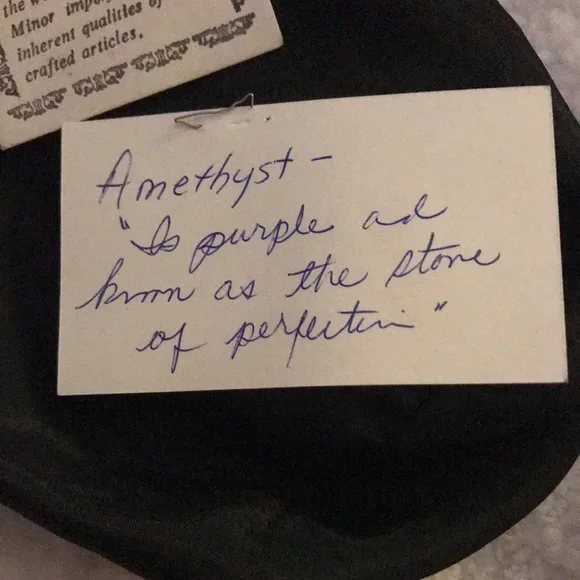 the w
Minor imp
inherent qualities of
crafted articles.
Amethyst –
"Is purple ad
known as the stone
of perfection"